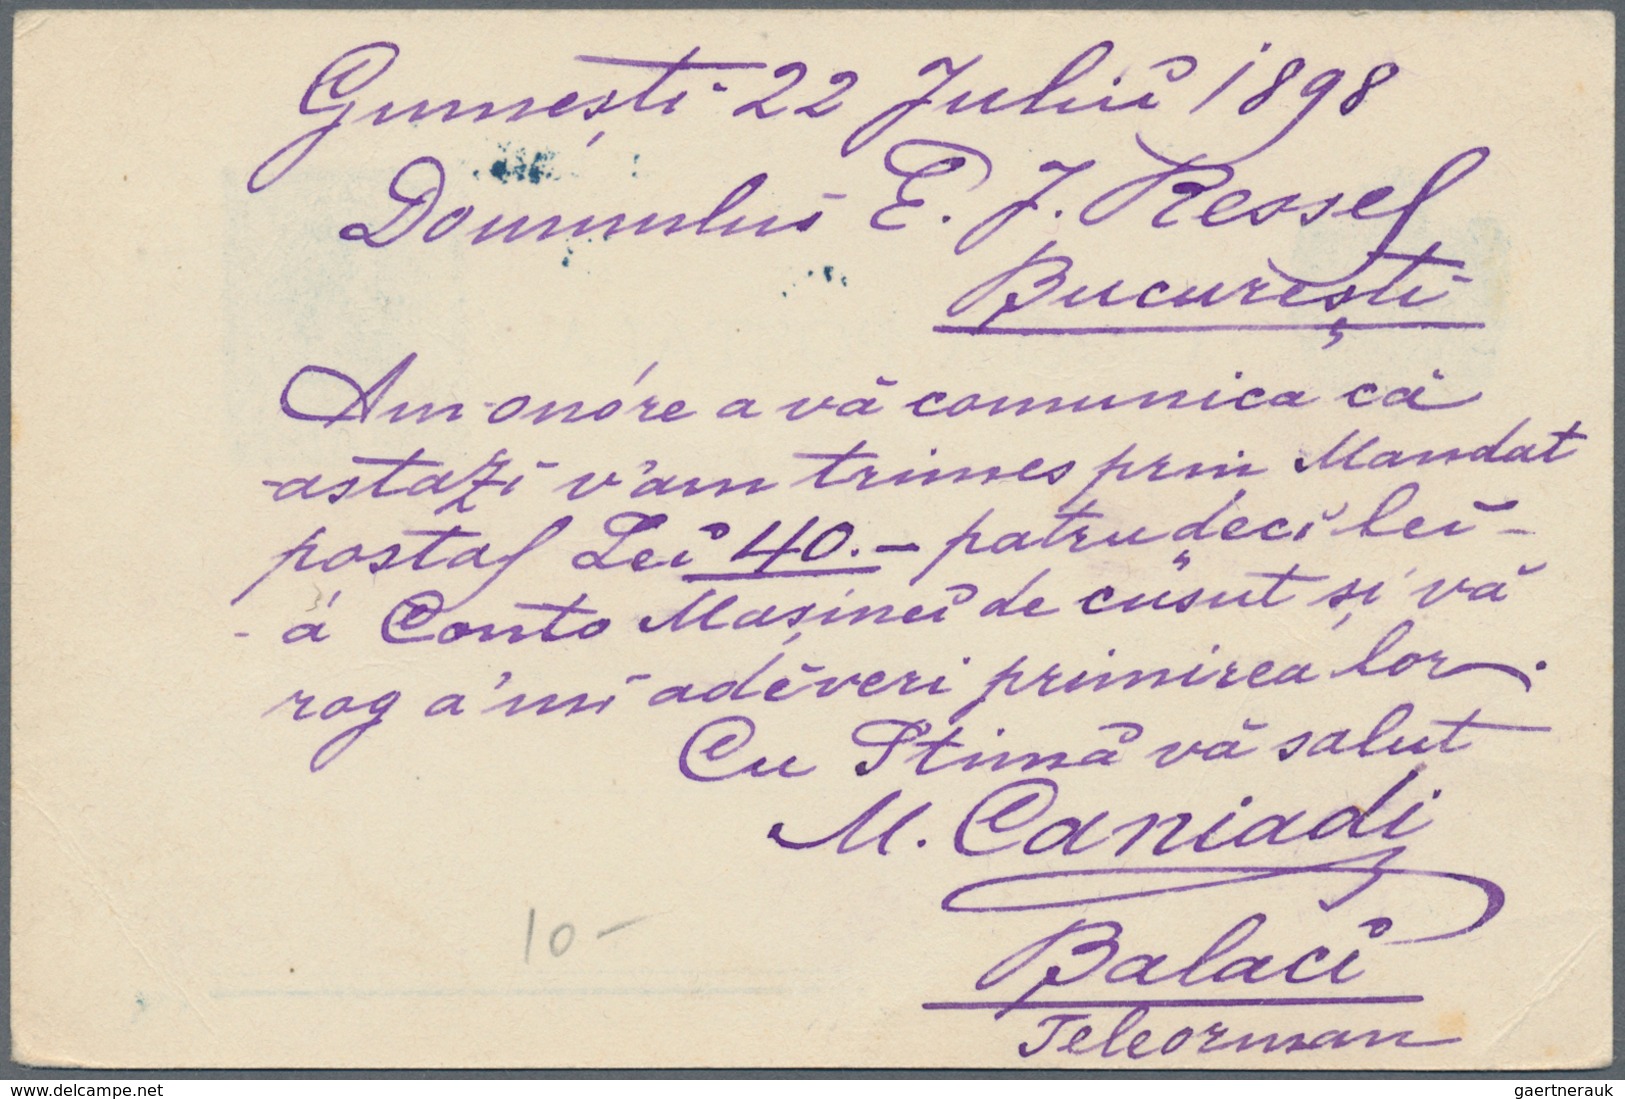 Gumești 22 Juliŭ 1898
Domnului E. J. Ressel
București
Am onóre a vă comunica că
astazĭ v'am trimes prin Mandat
postal Leĭ 40.— patrudecĭ leĭ –
- á Conto Mașineĭ de cŭsut și vă
rog a'mĭ adĕveri primirea lor.
Cu Stimă vă salut
M. Caniadi
Balacĭ
Teleorman
10 –
www.delcampe.net
gaertnerauk